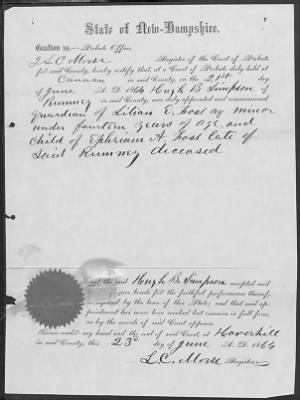 State of New-Hampshire.
Grafton ss.—Probate Office,
I L C Morse Register of the Court of Probate
for said County, hereby certify that, at a Court of Probate duly held at
Canaan in said County, on the 21st day
of June A. D. 1864 Hugh B Simpson of
Rumney in said County, was duly appointed and commissioned
guardian of Lilian E. Fost a minor
under fourteen years of age and
child of Ephriam A. Fost late of
said Rumney deceased
that the said Hugh B. Simpson accepted said
gave bonds for the faithful performance thereof,
required by the laws of this State; and that said ap-
pointment has never been revoked but remains in full force,
as by the records of said Court appears.
Given under my hand and the seal of said Court, at Haverhill
in said County, this 23d day of June A. D. 1864
L. C. Morse Register